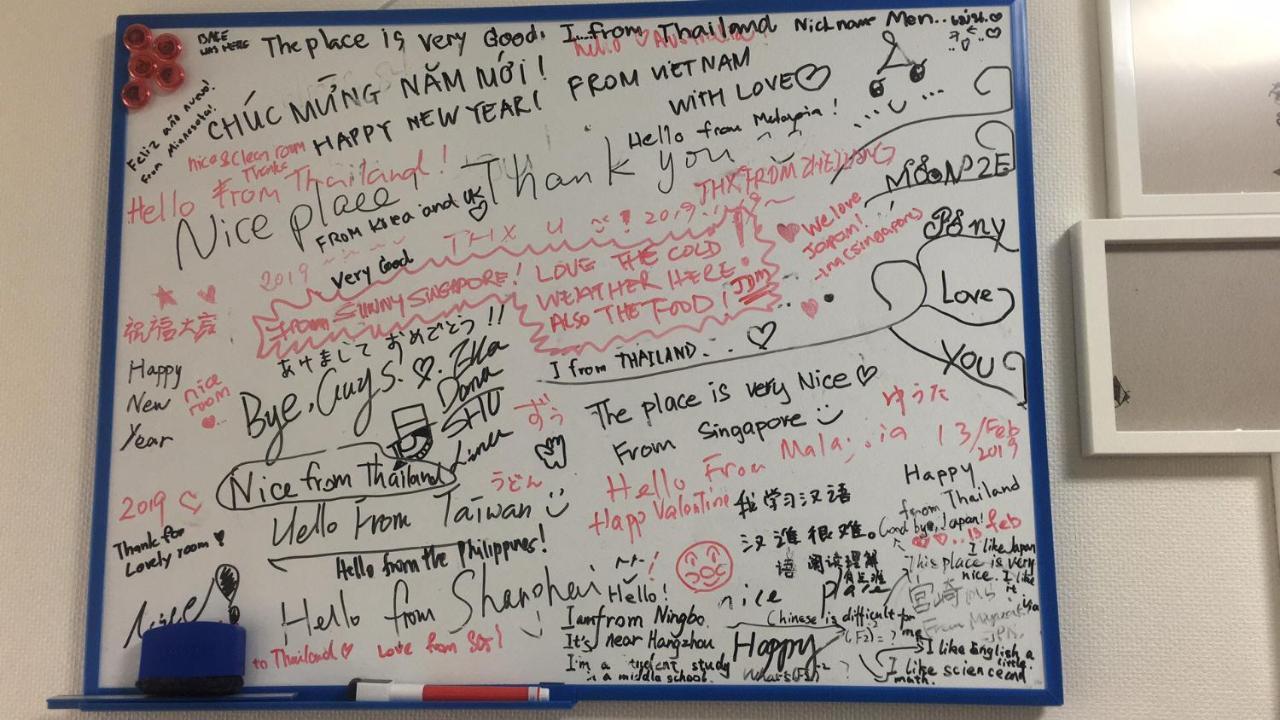 The place is very Good. I from Thailand Nick name Men..
hello Australia
CHÚC MỪNG NĂM MỚI! FROM VIETNAM
HAPPY NEW YEAR! WITH LOVE
Feliz año nuevo!
from Minnesota!
nice & clean room
Thanks
Hello from Malaysia!
Hello from Thailand!
Nice place Thank you
THX FROM ZHEJIANG
FROM Korea and UK
2019
very Good
THX U 2019
We love
Japan!
(singapore)
from SUNNY SINGAPORE! LOVE THE COLD
WEATHER HERE!
ALSO THE FOOD!
Love
YOU
祝福大家
あけましておめでとう!!
I from THAILAND...
Happy
New
Year
nice
room
Bye, Guys!
Dana
ずぅ
The place is very Nice
From Singapore
ゆうた
13/Feb
2019
Nice from Thailand
うどん
Hello From
Happy Valentine
我学习汉语
汉语很难。
阅读理解
Happy
from Thailand
Good bye, Japan!
13 feb
2019
Hello From Taiwan
Thanks for
Lovely room!
Hello from the Philippines!
I like Japan
This place is very
nice. I like
it
宮崎
Hello from Shanghai
Hello!
nice place
Nice!
I am from Ningbo.
It's near Hangzhou
I'm a student, study
in a middle school.
Chinese is difficult for
me
Happy
to Thailand Love from
I like English a
little.
I like science and
math.